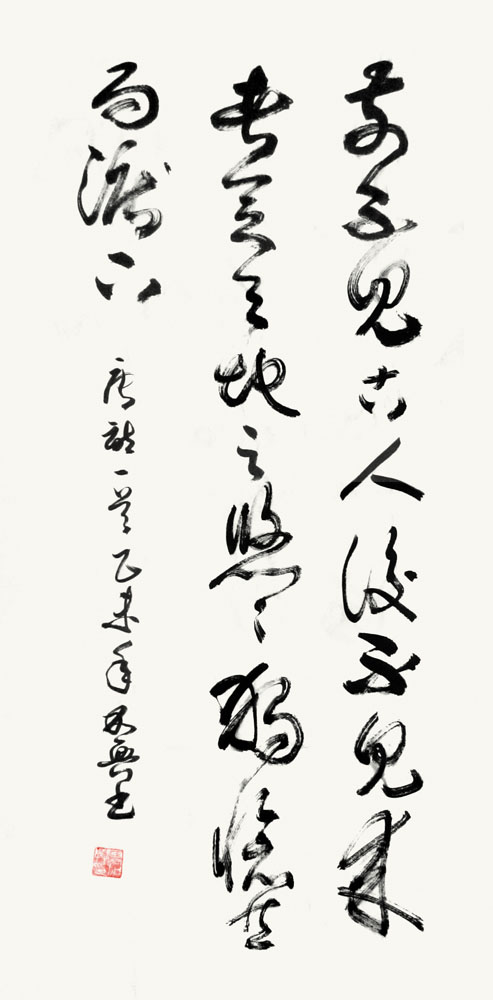 前不見古人後不見來
者念天地之悠〻獨愴然
而涕下
唐詩一首乙未年興书